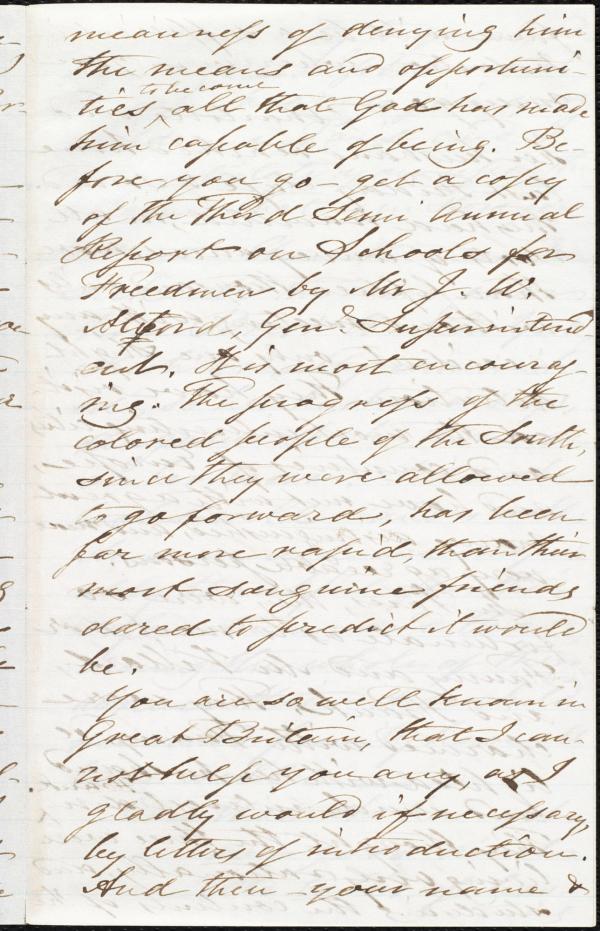 meanness of denying him
the means and opportuni-
ties ^to become all that God has made
him capable of being. Be-
fore you go - get a copy
of the Third Semi Annual
Report on Schools for
Freedmen by Mr J. W.
Alvord, Genl. Superintend-
ent. It is most encourag-
ing. The progress of the
colored people of the South,
since they were allowed
to go forward, has been
far more rapid, than their
most sanguine friends
dared to predict it would
be.
You are so well known in
Great Britain, that I can-
not help you any, as I
gladly would if necessary,
by letters of introduction.
And then - your name &